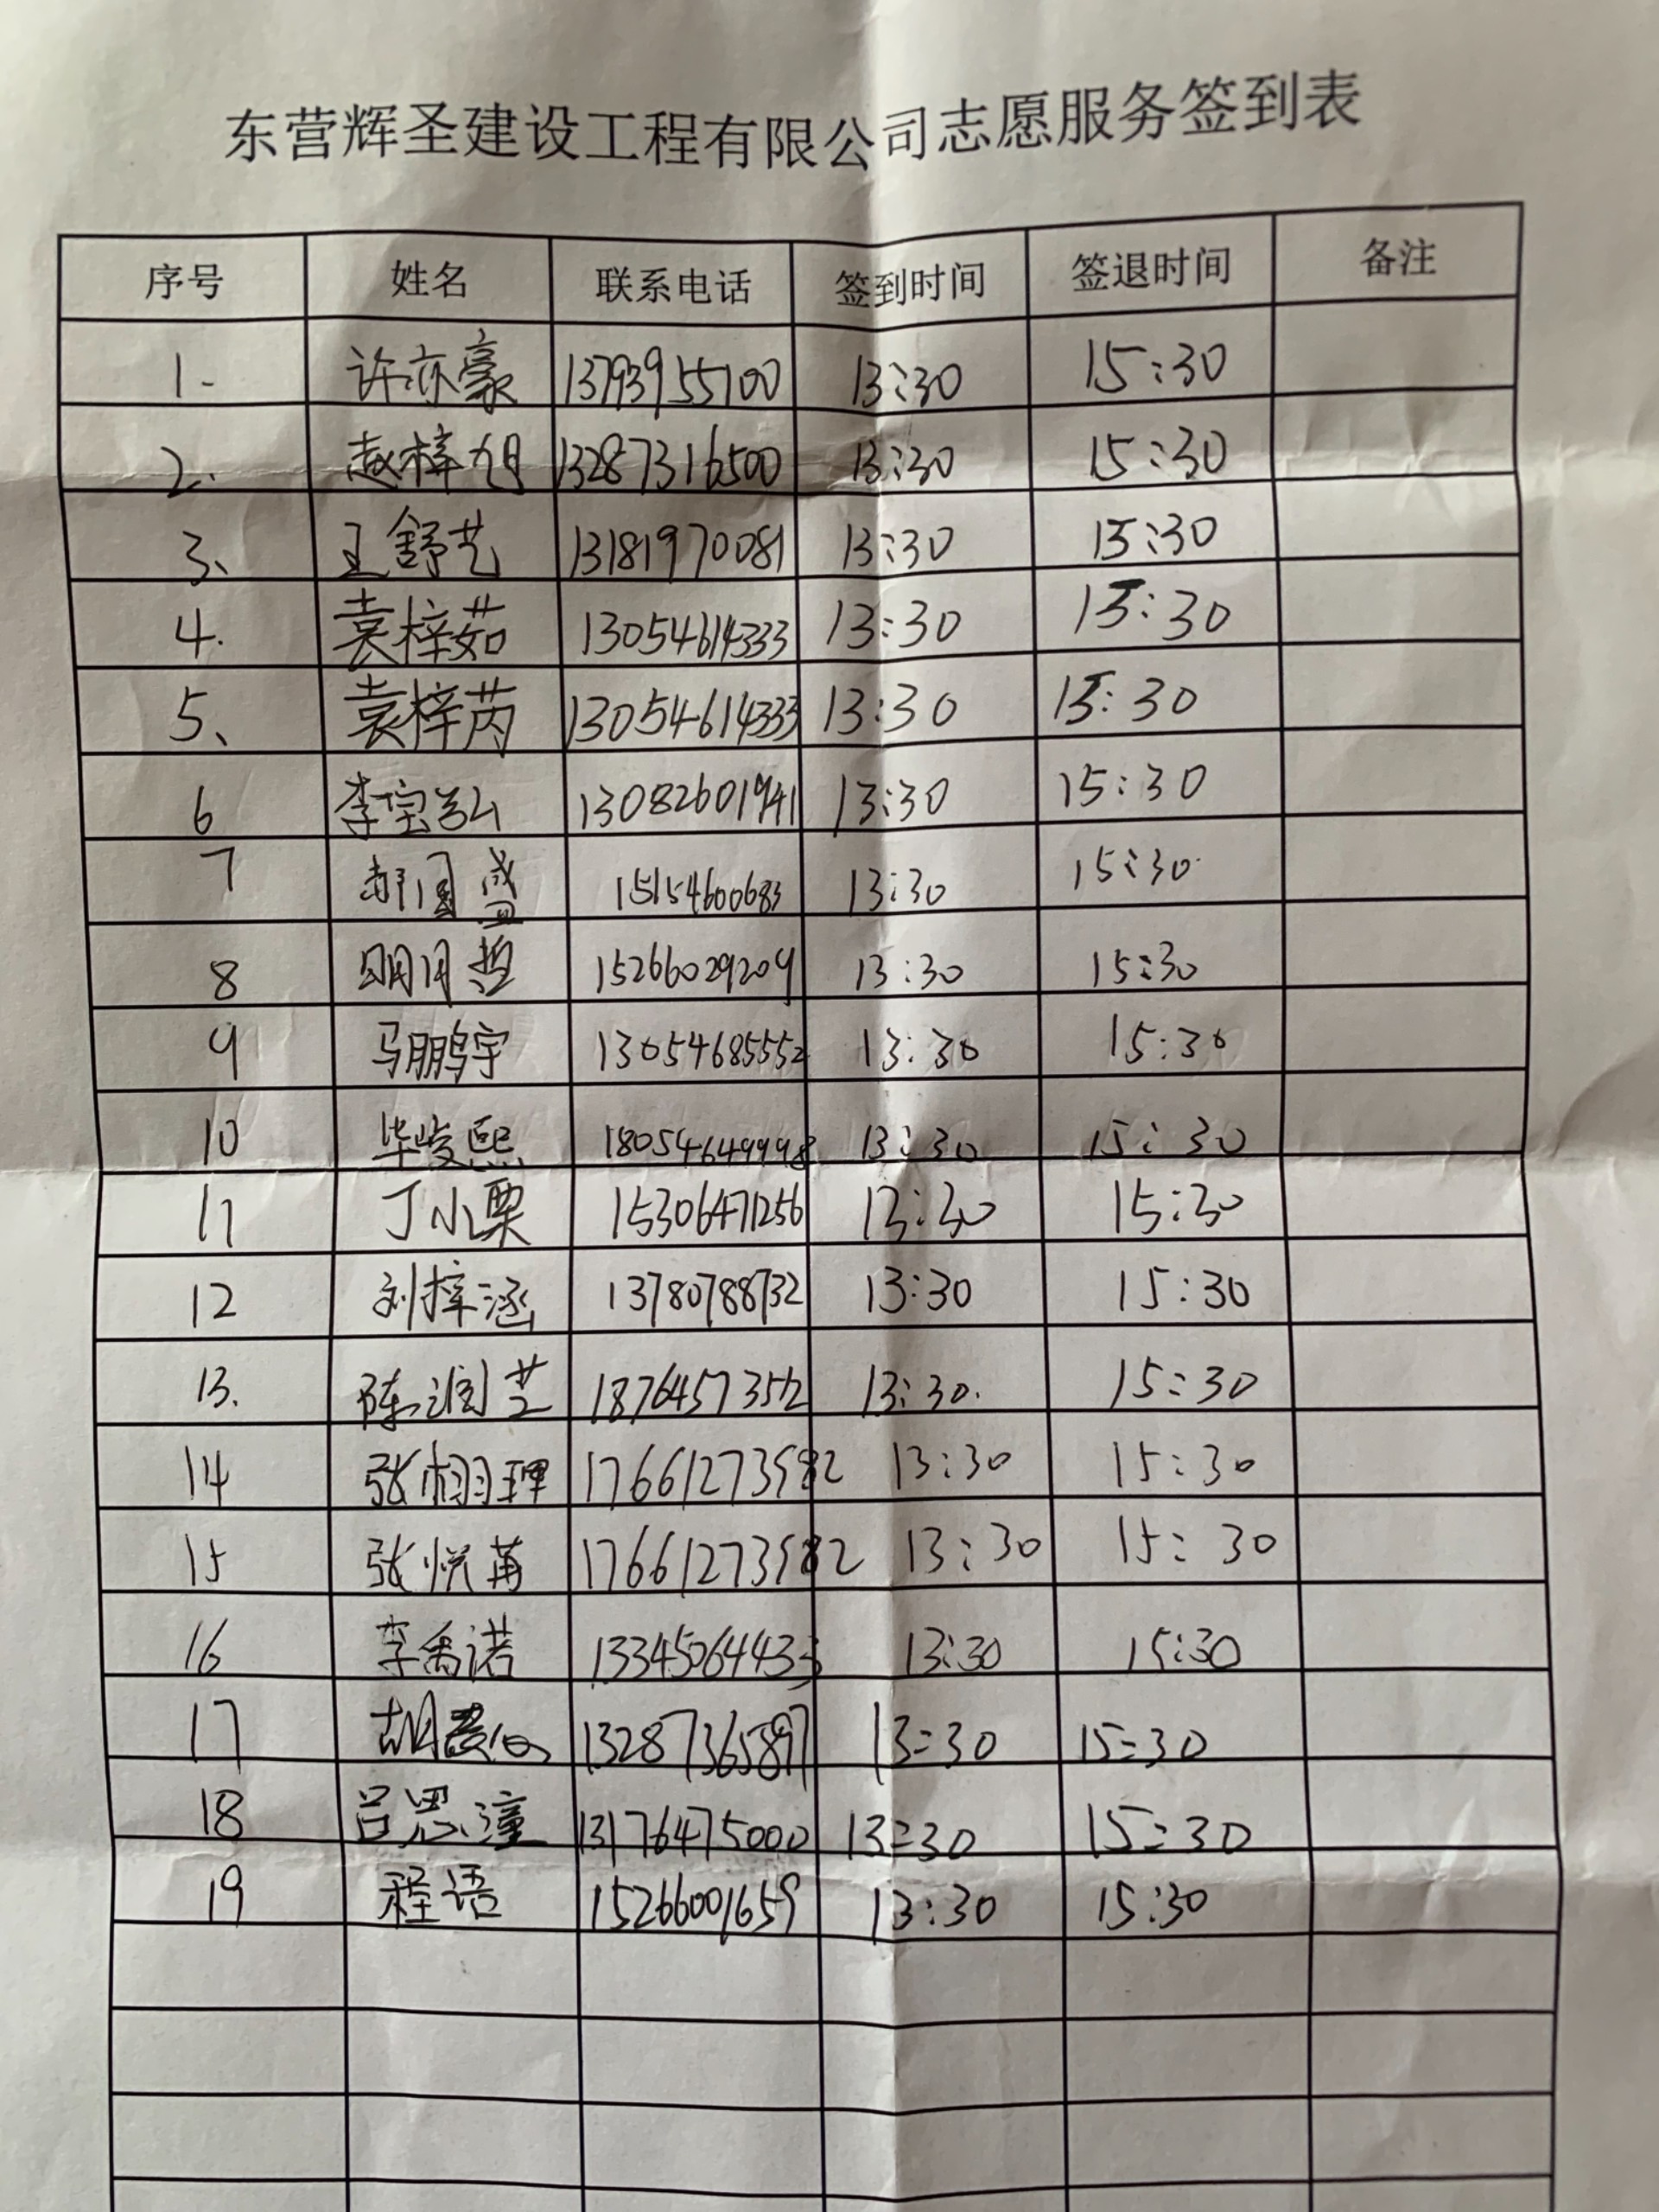 东营辉圣建设工程有限公司志愿服务签到表
序号 姓名 联系电话 签到时间 签退时间 备注
1. 许亦豪 13793955100 13:30 15:30
2. 赵梓旭 13287316500 13:30 15:30
3、 王舒艺 13181970081 13:30 15:30
4. 袁梓茹 13054614333 13:30 15:30
5、 袁梓芮 13054614333 13:30 15:30
6 李宝弘 13082601941 13:30 15:30
7 郝国盛 15154600683 13:30 15:30
8 明月哲 15266029209 13:30 15:30
9 马鹏宇 13054685552 13:30 15:30
10 毕峻熙 18054649998 13:30 15:30
11 丁小栗 15306471256 13:30 15:30
12 刘梓涵 13780788732 13:30 15:30
13. 陈润芝 18764573552 13:30 15:30
14 张栩理 17661273582 13:30 15:30
15 张悦苒 17661273582 13:30 15:30
16 李禹诺 13345064433 13:30 15:30
17 胡 13287365897 13:30 15:30
18 吕思潼 13176475000 13:30 15:30
19 程语 15266001659 13:30 15:30